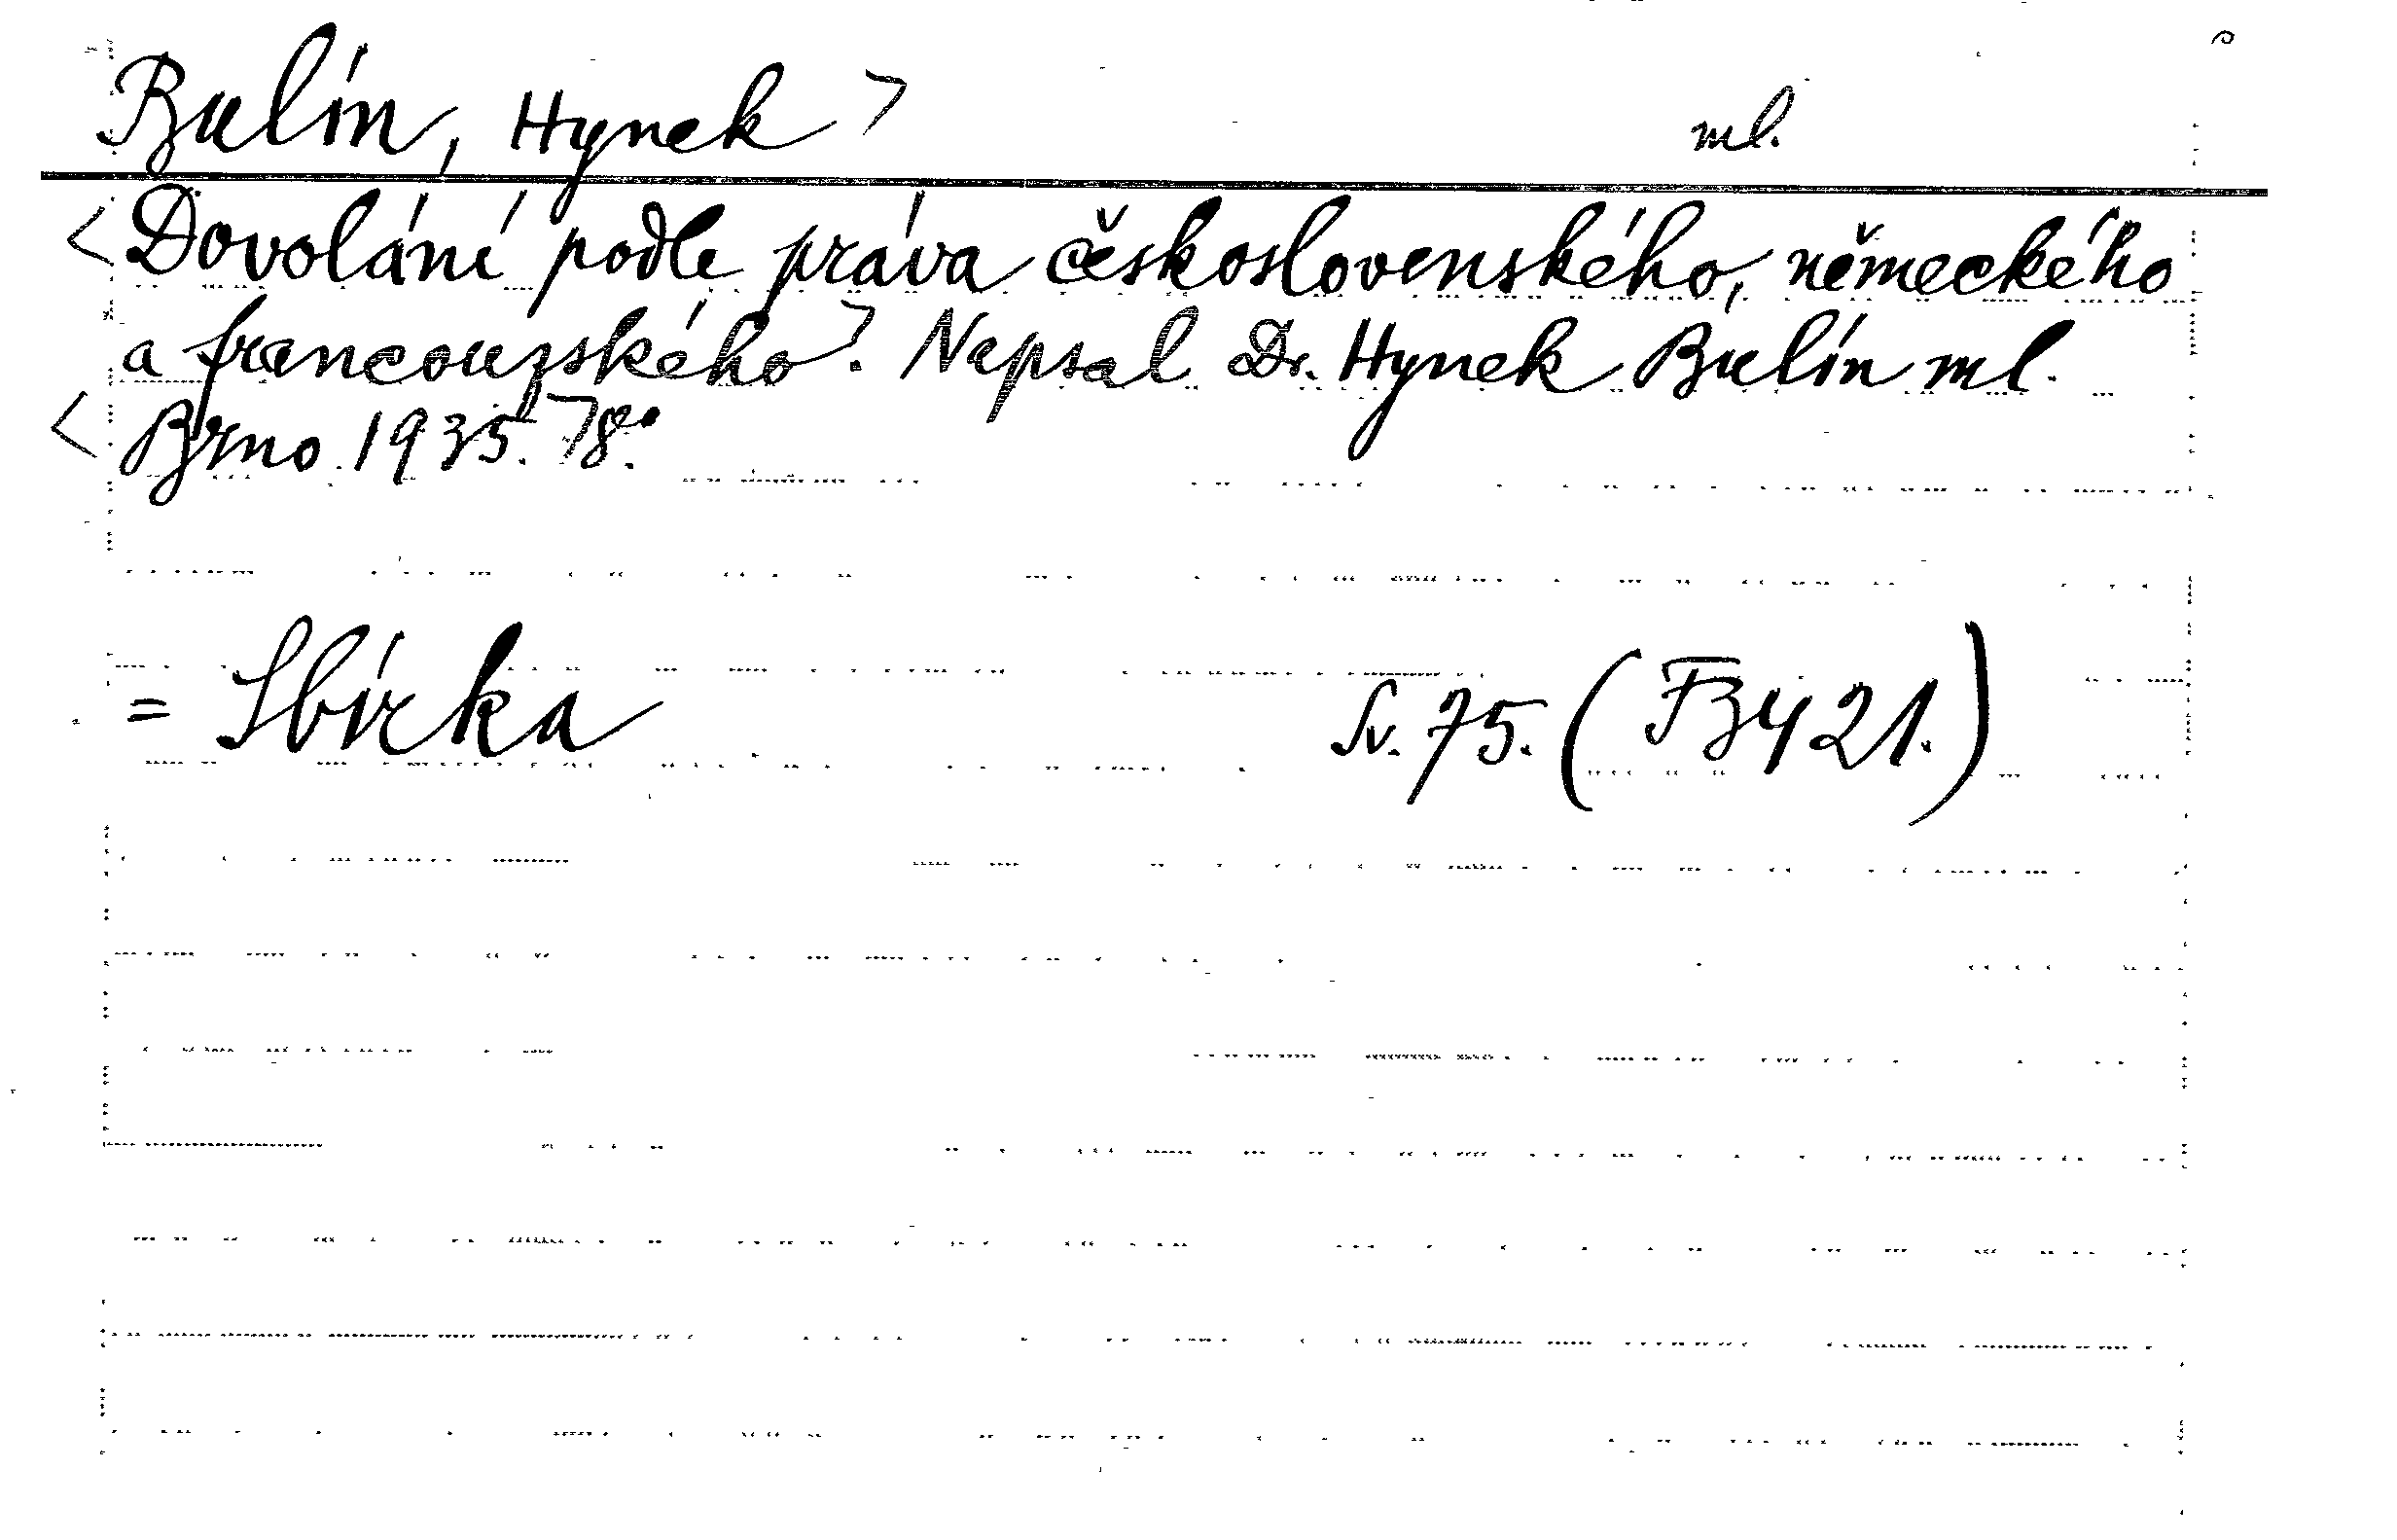 Bulín, Hynek > ml.
<Dovolání podle práva československého, německého
a francouzského>. Napsal Dr. Hynek Bulín ml.
<Brno 1935.>8°.
= Sbírka Sv. 75. (Fz 421.)